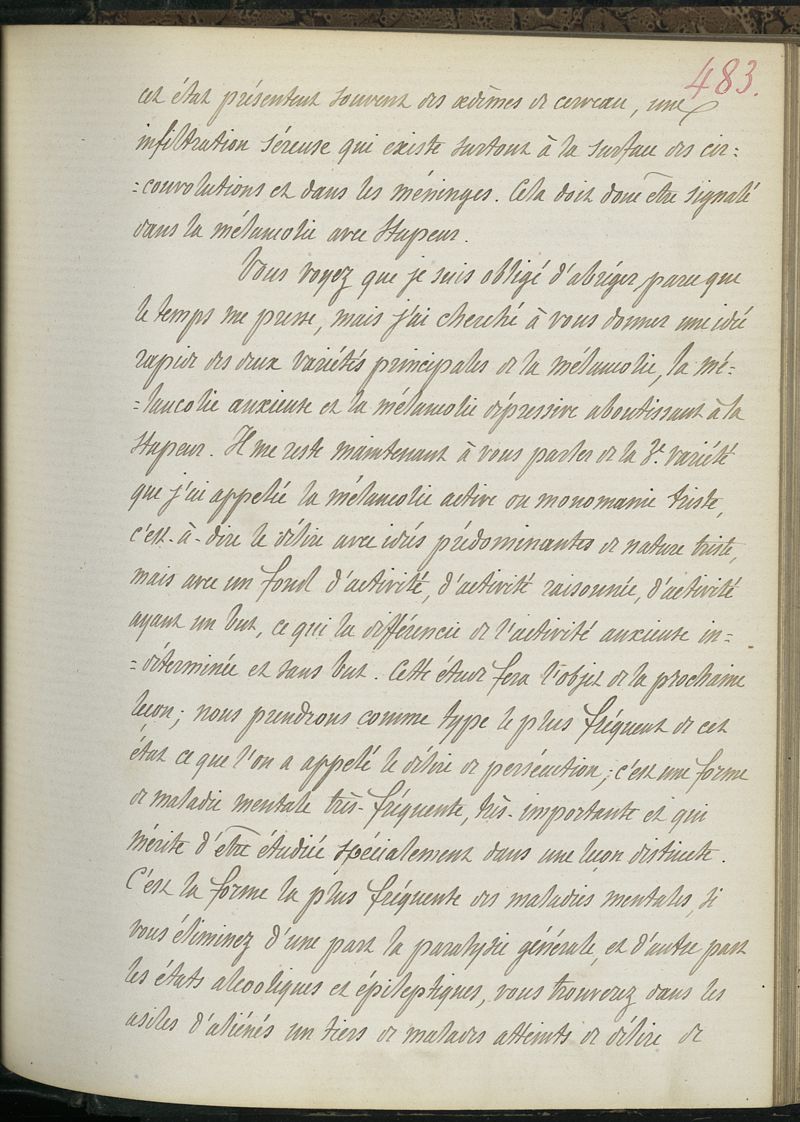 483.
cet état présentent souvent des œdèmes de cerveau, une
infiltration séreuse qui existe surtout à la surface des cir=
=convolutions et dans les méninges. Cela doit donc être signalé
dans la mélancolie avec stupeur.
Vous voyez que je suis obligé d'abréger parce que
le temps me presse, mais j'ai cherché à vous donner une idée
rapide des deux variétés principales de la mélancolie, la mé=
=lancolie anxieuse et la mélancolie dépressive aboutissant à la
stupeur. Il me reste maintenant à vous parler de la 3e. variété
que j'ai appelée la mélancolie active ou monomanie triste,
c'est-à-dire le délire avec idées prédominantes de nature triste,
mais avec un fond d'activité, d'activité raisonnée, d'activité
ayant un but, ce qui la différencie de l'activité anxieuse in=
=déterminée et sans but. Cette étude fera l'objet de la prochaine
leçon; nous prendrons comme type le plus fréquent de cet
état ce que l'on a appelé le délire de persécution; c'est une forme
de maladie mentale très-fréquente, très-importante et qui
mérite d'être étudiée spécialement dans une leçon distincte.
C'est la forme la plus fréquente des maladies mentales, si
vous éliminez d'une part la paralysie générale, et d'autre part
les états alcooliques et épileptiques, vous trouverez dans les
asiles d'aliénés un tiers de malades atteints de délire de